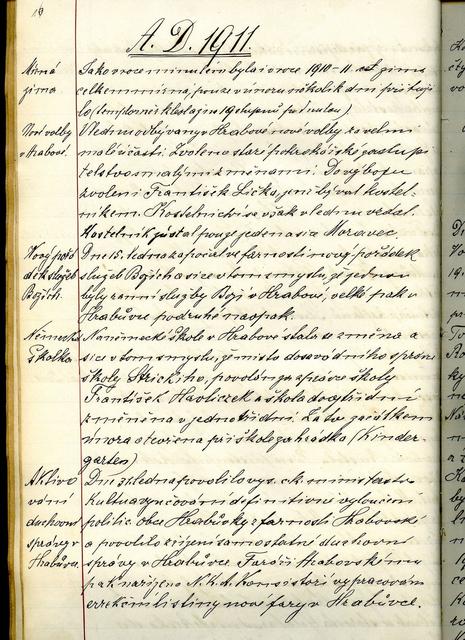 A. D. 1911.
Mírná
zima
Jako v roce minulém byla i v roce 1910-11 zima
celkem mírná, pouze v únoru několik dní přituži-
lo (tem klesla jen 19 stupňů pod nulou)
Nové volby
v Hrabové.
V lednu odbývány v Hrabové nové volby za velmi
malé účasti. Zvoleno staré zastupi
telstvo s malými změnami. Do výboru
zvolen i František Lička, prvé býval kostel-
níkem. Kostelnictví se však v lednu vzdal.
Kostelník zůstal pouze jeden a sice Moravec.
Nový pořá
dek služeb
Božích.
Dne 15. ledna započal ve farnosti nový pořádek
služeb Božích a sice v tom smyslu, že jednou
byly ranní služby Boží v Hrabové, velké pak v
Hrabůvce podruhé naopak.
Německá
školka.
Na německé škole v Hrabové stala se změna a
sice v tom smyslu, že místo dosavadního správce
školy povolán za správce školy
František Havlíček a škola dvojtřídní
změněna v jednotřídní. Za to začátkem
února otevřena při škole zahrádka (Kinder-
garten)
Aktivo
vání
duchovní
správy v
Hrabůvce.
Dne 31. ledna povolilo vys. c.k. ministerstvo
kultu a vyučování definitivní vyloučení
politic. obce Hrabůvky z farnosti Hrabovské
a povolilo zřízení samostatné duchovní
správy v Hrabůvce. Faráři Hrabovskému
pak nařízeno N. K. A. Konsistoří vypracování
erekční listiny nové fary v Hrabůvce.